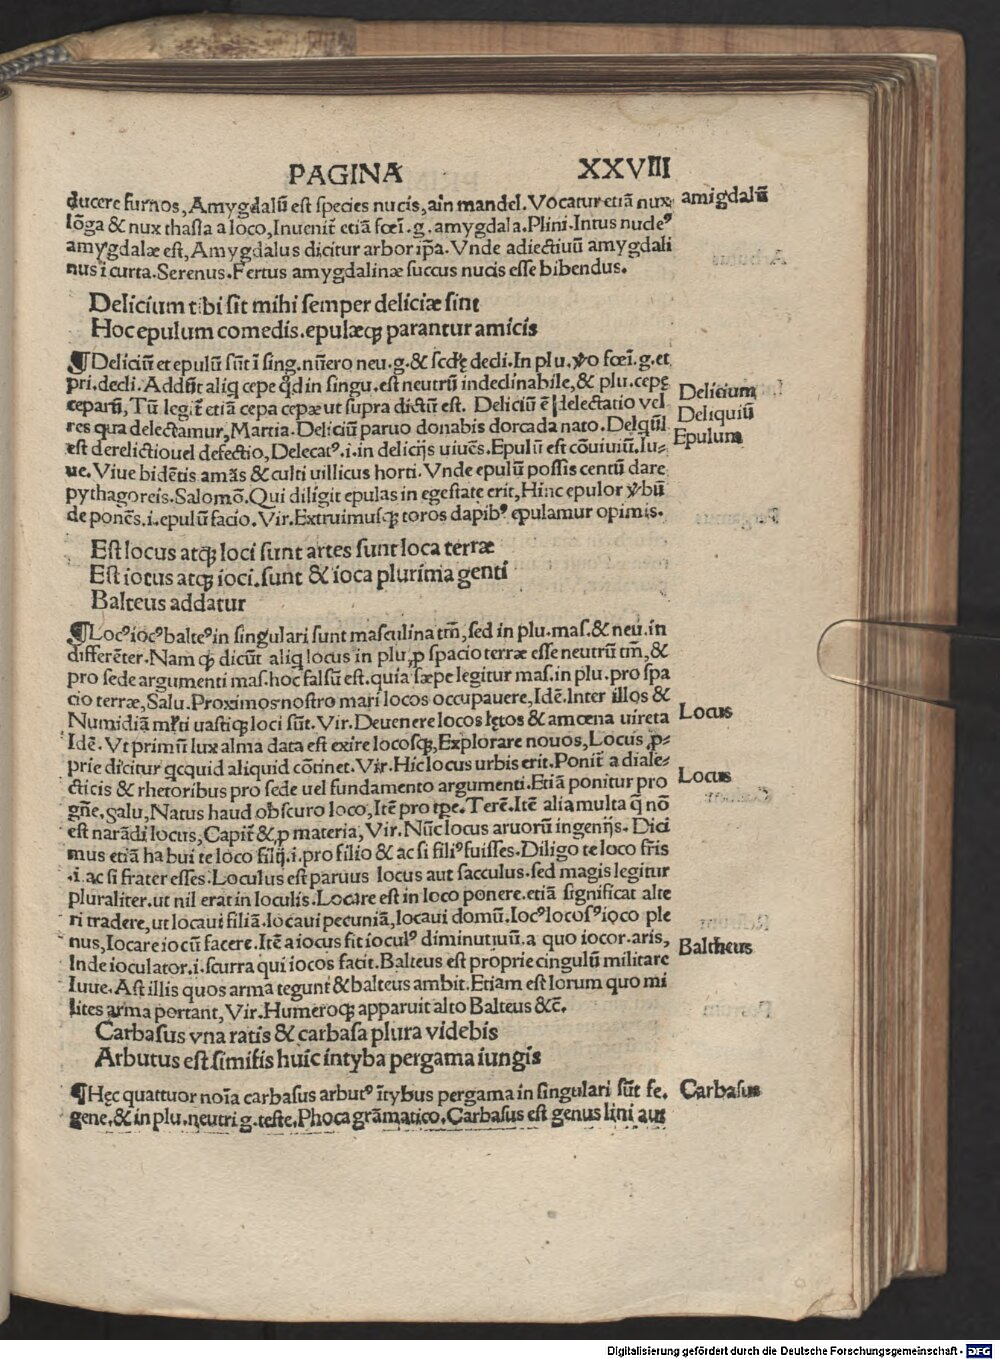 PAGINA XXVIII
ducere furnos, Amygdalū est species nucis, ain mandel. Vocatur etiā nux amigdalū
lōga & nux thasia a loco, Inuenit̄ etiā fœī. g. amygdala. Plini. Intus nucleꝰ
amygdalæ est, Amygdalus dicitur arbor ip̄a. Vnde adiectiuū amygdali
nus ī curta. Serenus. Fertus amygdalinæ succus nucis esse bibendus.
Delicium tibi sit mihi semper deliciæ sint
Hoc epulum comedis. epulæqꝫ parantur amicis
¶ Deliciū et epulū sūt ī sing. nūero neu. g. & scdę decli. In plu. ꝟo fœī. g. et
pri. decli. Addūt aliq cepe qd in singu. est neutrū indeclinabile, & plu. cepę
ceparū, Tū legit̄ etiā cepa cepæ ut supra dictū est. Deliciū ē delectatio vel Delicium
res qua delectamur, Martia. Deliciū paruo donabis dorcada nato. Delqūl Deliquiū
est derelictio uel defectio, Delecatꝰ. i. in delicijs uiuēs. Epulū est cōuiuiū. Iu⸗ Epulum
ue. Viue bidētis amās & culti uillicus horti. Vnde epulū possis centū dare
pythagoreis. Salomō. Qui diligit epulas in egestate erit, Hinc epulor ꝟbū
de ponēs. i. epulū facio. Vir. Extruimusqꝫ toros dapibꝰ epulamur opimis.
Est locus atqꝫ loci sunt artes sunt loca terræ
Est iocus atqꝫ ioci. sunt & ioca plurima genti
Balteus addatur
¶ Locꝰ iocꝰ balteꝰ in singulari sunt masculina tm̄, sed in plu. mas. & neu. in
differēter. Nam qꝫ dicūt aliq locus in plu. ꝓ spacio terræ esse neutrū tm̄, &
pro sede argumenti mas. hoc falsū est. quia sæpe legitur mas. in plu. pro spa
cio terræ, Salu. Proximos nostro mari locos occupauere, Idē. Inter illos &
Numidiā ml̄ti uastiqꝫ loci sūt. Vir. Deuenere locos lętos & amœna uireta Locus
Idē. Vt primū lux alma data est exire locosqꝫ, Explorare nouos, Locus ꝓ⸗
prie dicitur qcquid aliquid cōtinet. Vir. Hic locus urbis erit. Ponit̄ a diale⸗
cticis & rhetoribus pro sede uel fundamento argumenti. Etiā ponitur pro Locus
gn̄e, salu, Natus haud obscuro loco, Itē pro tp̄e. Terē. Itē alia multa q̄ nō
est narādi locus, Capit̄ & ꝓ materia, Vir. Nūc locus aruorū ingenijs. Dici
mus etiā habui te loco filij. i. pro filio & ac si filiꝰ fuisses. Diligo te loco fr̄is
.i. ac si frater esses. Loculus est paruus locus aut sacculus. sed magis legitur
pluraliter. ut nil erat in loculis. Locare est in loco ponere. etiā significat alte
ri tradere, ut locaui filiā. locaui pecuniā, locaui domū. Iocꝰ locosꝰ ioco ple
nus, Iocare iocū facere. Itē a iocus fit ioculꝰ diminutiuū. a quo iocor. aris,
Inde ioculator. i. scurra qui iocos facit. Balteus est proprie cingulū militare Baltheus
Iuue. Ast illis quos arma tegunt & balteus ambit. Etiam est lorum quo mi
lites arma portant, Vir. Humeroqꝫ apparuit alto Balteus &c̄.
Carbasus vna ratis & carbasa plura videbis
Arbutus est similis huic intyba pergama iungis
¶ Hęc quattuor noīa carbasus arbutꝰ ītybus pergama in singulari sūt fe. Carbasus
gene. & in plu. neutri g. teste. Phoca grāmatico. Carbasus est genus lini aut
Digitalisierung gefördert durch die Deutsche Forschungsgemeinschaft - DFG